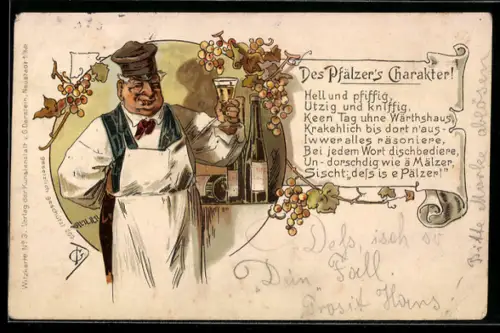 Des Pfälzer's Charakter!
Hell und pfiffig,
Utzig und kniffig,
Keen Tag uhne Wärthshaus,
Krakehlich bis dort n'aus-
Iwwer alles räsoniere,
Bei jedem Wort dischbediere,
Un-dorschdig wie ä Mälzer,
Sischt; deſs is e Pälzer!"
Deſs, isch so
"Dein" Fall.
Prosit Hans!
Bitte Marke ablösen
Witzkarte No 3. Verlag der Kunstanstalt v. D. Gerstein, Neustadt a/Hdt.
GESETZLICH GESCHÜTZT